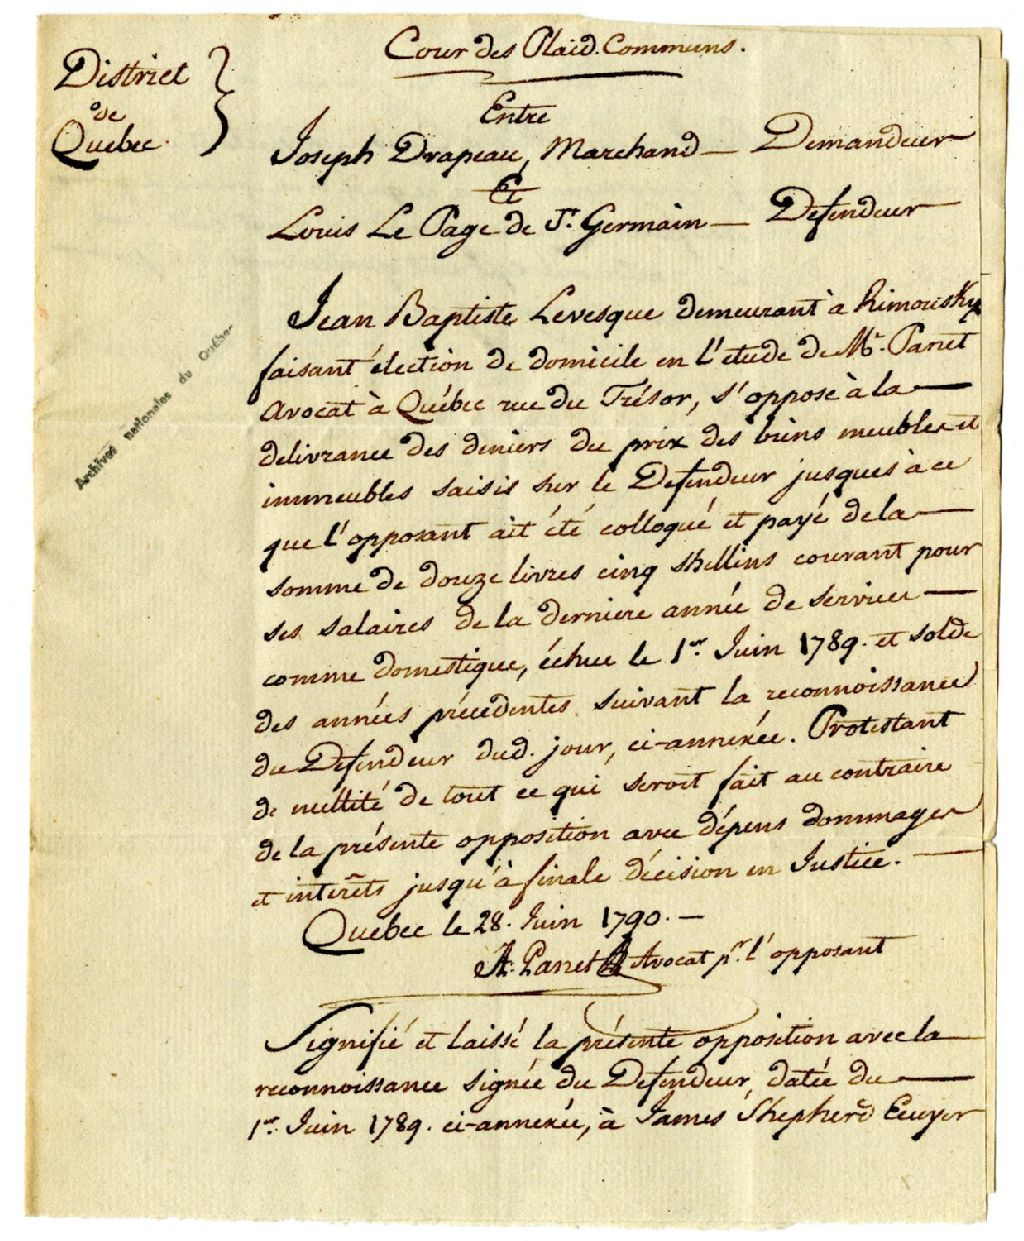 Cour des Plaid. Communs.
District
de
Québec.
Entre
Joseph Drapeau, Marchand — Demandeur
Et
Louis Le Page de St. Germain — Défendeur
Jean Baptiste Levesque demeurant à Rimousky
faisant élection de domicile en l'étude de Mr. Panet
Avocat à Québec rue du Trésor, s'oppose à la —
délivrance des deniers du prix des biens meubles et
immeubles saisis sur le Défendeur jusques à ce
que l'opposant ait été colloqué et payé de la —
somme de douze livres cinq shellins courant pour
ses salaires de la derniere année de services —
comme domestique, échue le 1er. Juin 1789. et solde
des années précédentes suivant la reconnoissance
du Défendeur dud. jour, ci-annexée. Protestant
de nullité de tout ce qui seroit fait au contraire
de la présente opposition avec dépens dommages
et interêts jusqu'à finale décision en Justice. —
Québec le 28. Juin 1790. —
A. Panet Avocat pr. l'opposant
Signifié et laissé la présente opposition avec la —
reconnoissance signée du Défendeur, datée du —
1er. Juin 1789. ci-annexée, à James Shepherd Ecuyer
Archives nationales du Québec